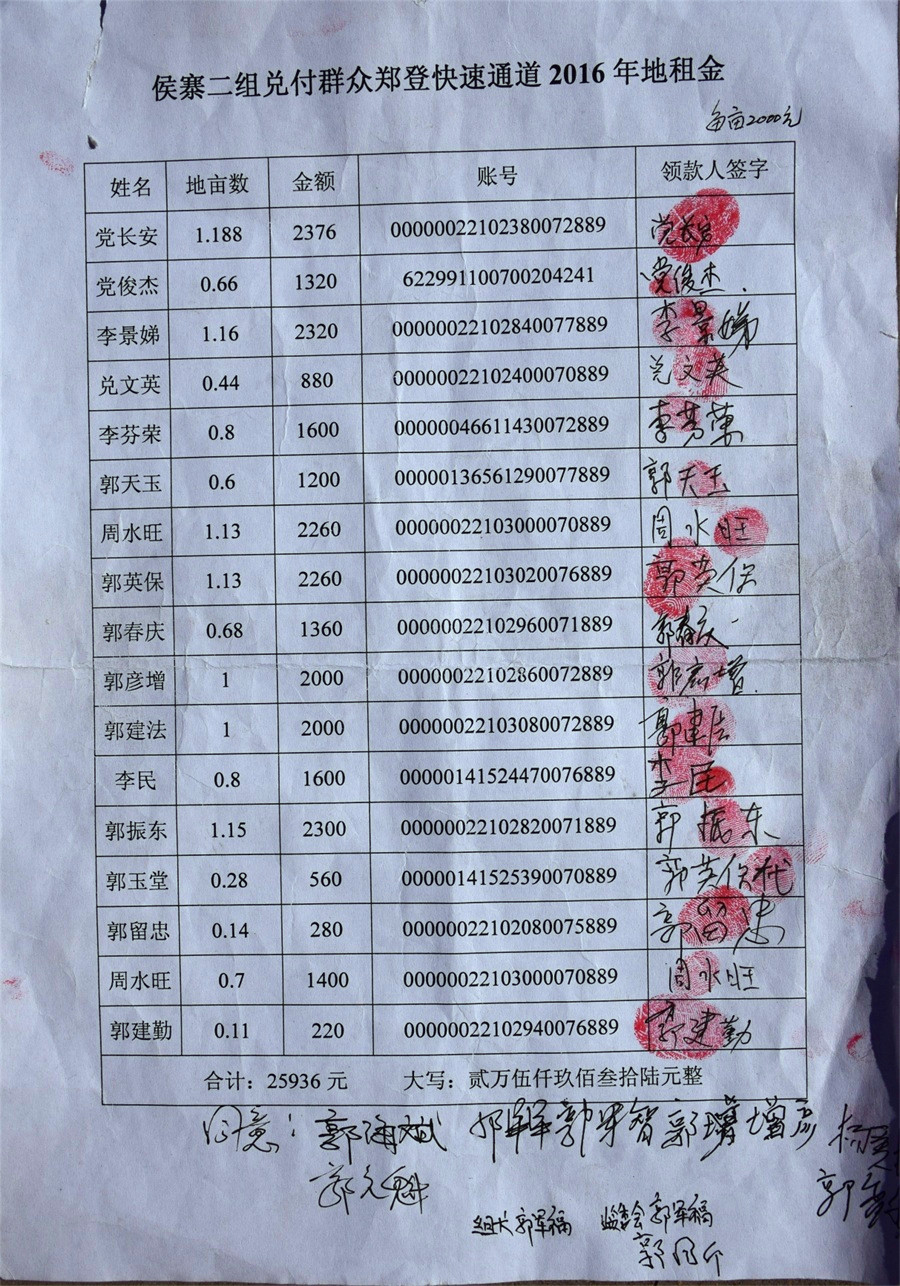 侯寨二组兑付群众郑登快速通道 2016 年地租金
每亩2000元
姓名 地亩数 金额 账号 领款人签字
党长安 1.188 2376 00000022102380072889 党长安
党俊杰 0.66 1320 622991100700204241 党俊杰
李景娣 1.16 2320 00000022102840077889 李景娣
兑文英 0.44 880 00000022102400070889 兑文英
李芬荣 0.8 1600 00000046611430072889 李芬荣
郭天玉 0.6 1200 00000136561290077889 郭天玉
周水旺 1.13 2260 00000022103000070889 周水旺
郭英保 1.13 2260 00000022103020076889 郭英保
郭春庆 0.68 1360 00000022102960071889 郭春庆
郭彦增 1 2000 00000022102860072889 郭彦增
郭建法 1 2000 00000022103080072889 郭建法
李民 0.8 1600 00000141524470076889 李民
郭振东 1.15 2300 00000022102820071889 郭振东
郭玉堂 0.28 560 00000141525390070889 郭英保代
郭留忠 0.14 280 00000022102080075889 郭留忠
周水旺 0.7 1400 00000022103000070889 周水旺
郭建勤 0.11 220 00000022102940076889 郭建勤
合计：25936 元 大写：贰万伍仟玖佰叁拾陆元整
同意：郭海斌 郭
郭元魁 郭
组长郭军福 监委会郭军福
郭